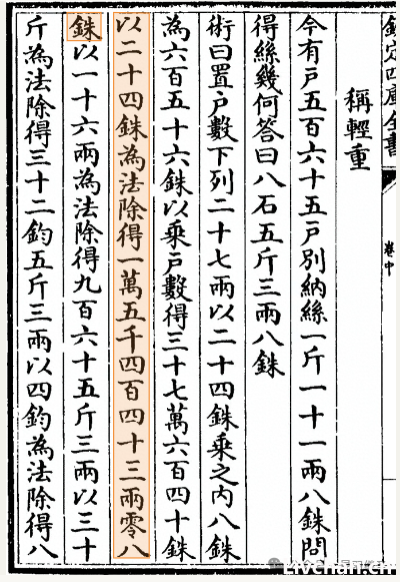 欽定四庫全書
卷中
稱輕重
今有戶五百六十五戶別納絲一斤一十一兩八銖問
得絲幾何答曰八石五斤三兩八銖
術曰置戶數下列二十七兩以二十四銖乘之內八銖
為六百五十六銖以乘戶數得三十七萬六百四十銖
以二十四銖為法除得一萬五千四百四十三兩零八
銖以一十六兩為法除得九百六十五斤三兩以三十
斤為法除得三十二鈞五斤三兩以四鈞為法除得八